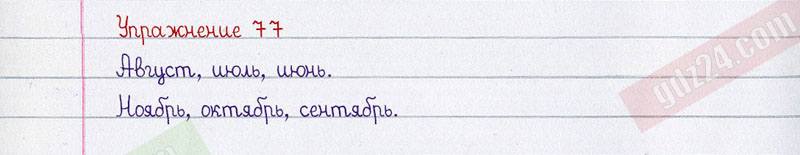 Упражнение 77
Август, июль, июнь.
Ноябрь, октябрь, сентябрь.
gdz24.com